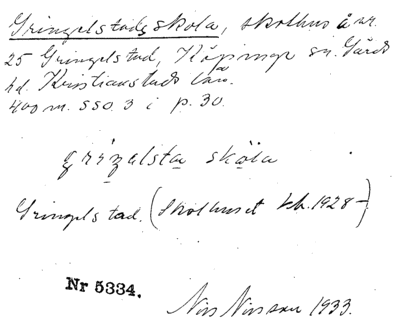 Gringelstads skola, skolhus å nr.
25 Gringelstad, Köpinge sn. Gärds
hd. Kristianstads län.
400 m. SSO. 3 i p. 30.
grizalsta skola
Gringelstad. (Skolhuset 1928-)
Nr 5334.
Nils Nilsson 1933.